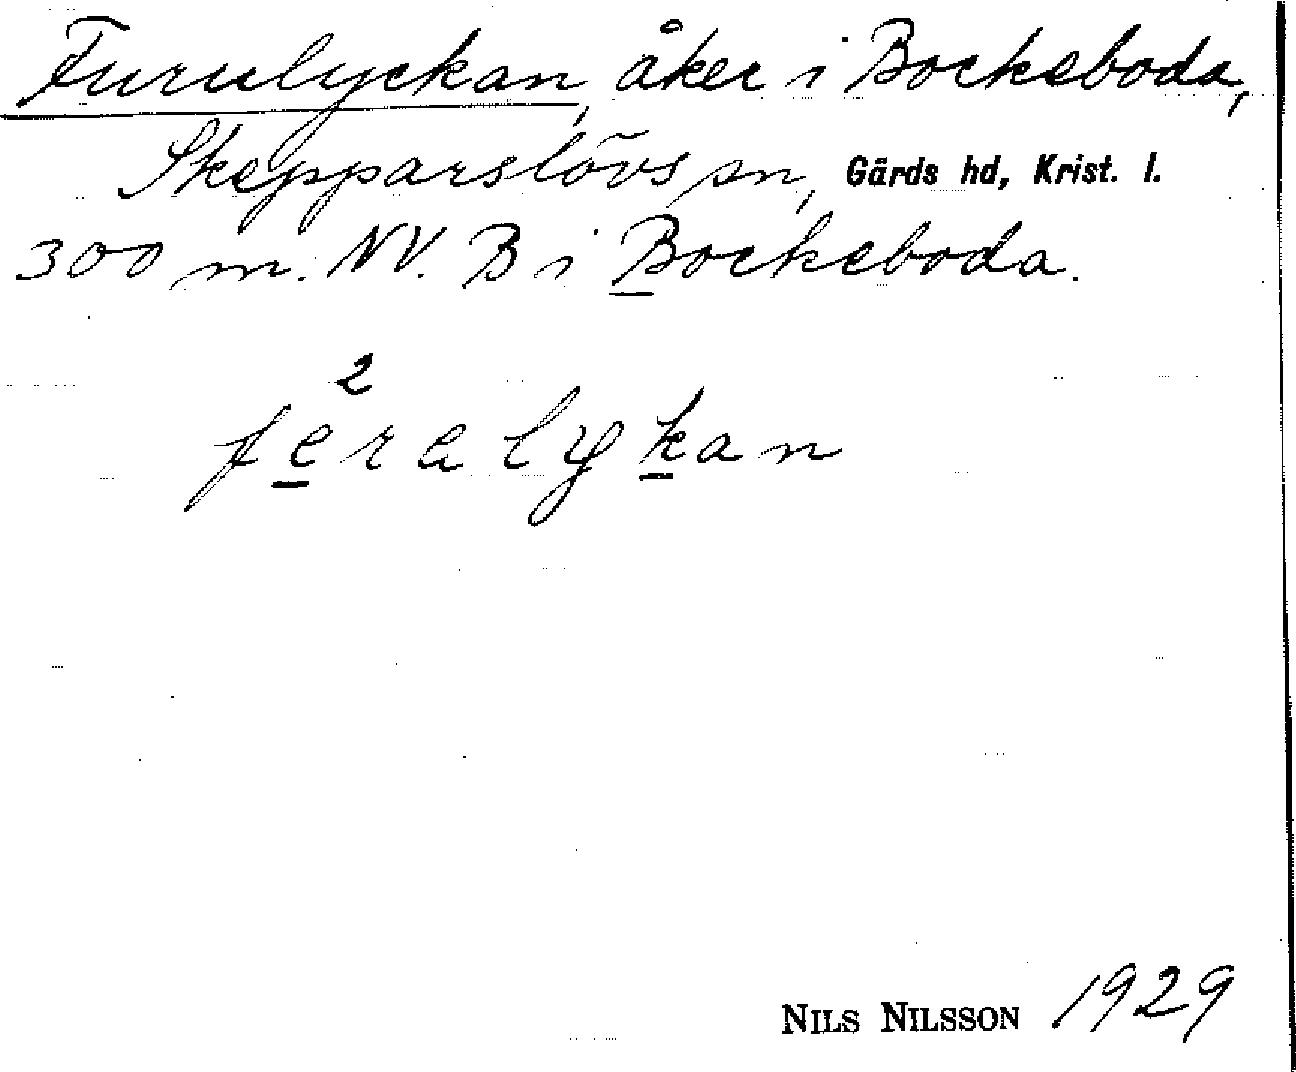 Furulyckan, åker i Bockeboda,
Skepparslövs sn, Gärds hd, Krist. l.
300 m. NV. B i Bockeboda.
2
feralykan
NILS NILSSON 1929